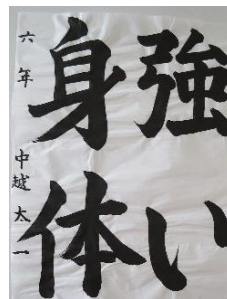 強い
身体
六年 中越太一